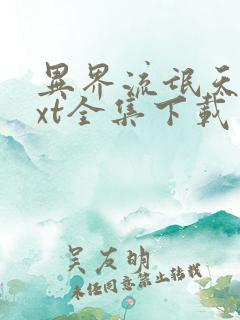 異界流氓天
xt全集下載
吴友明
未经同意禁止转载